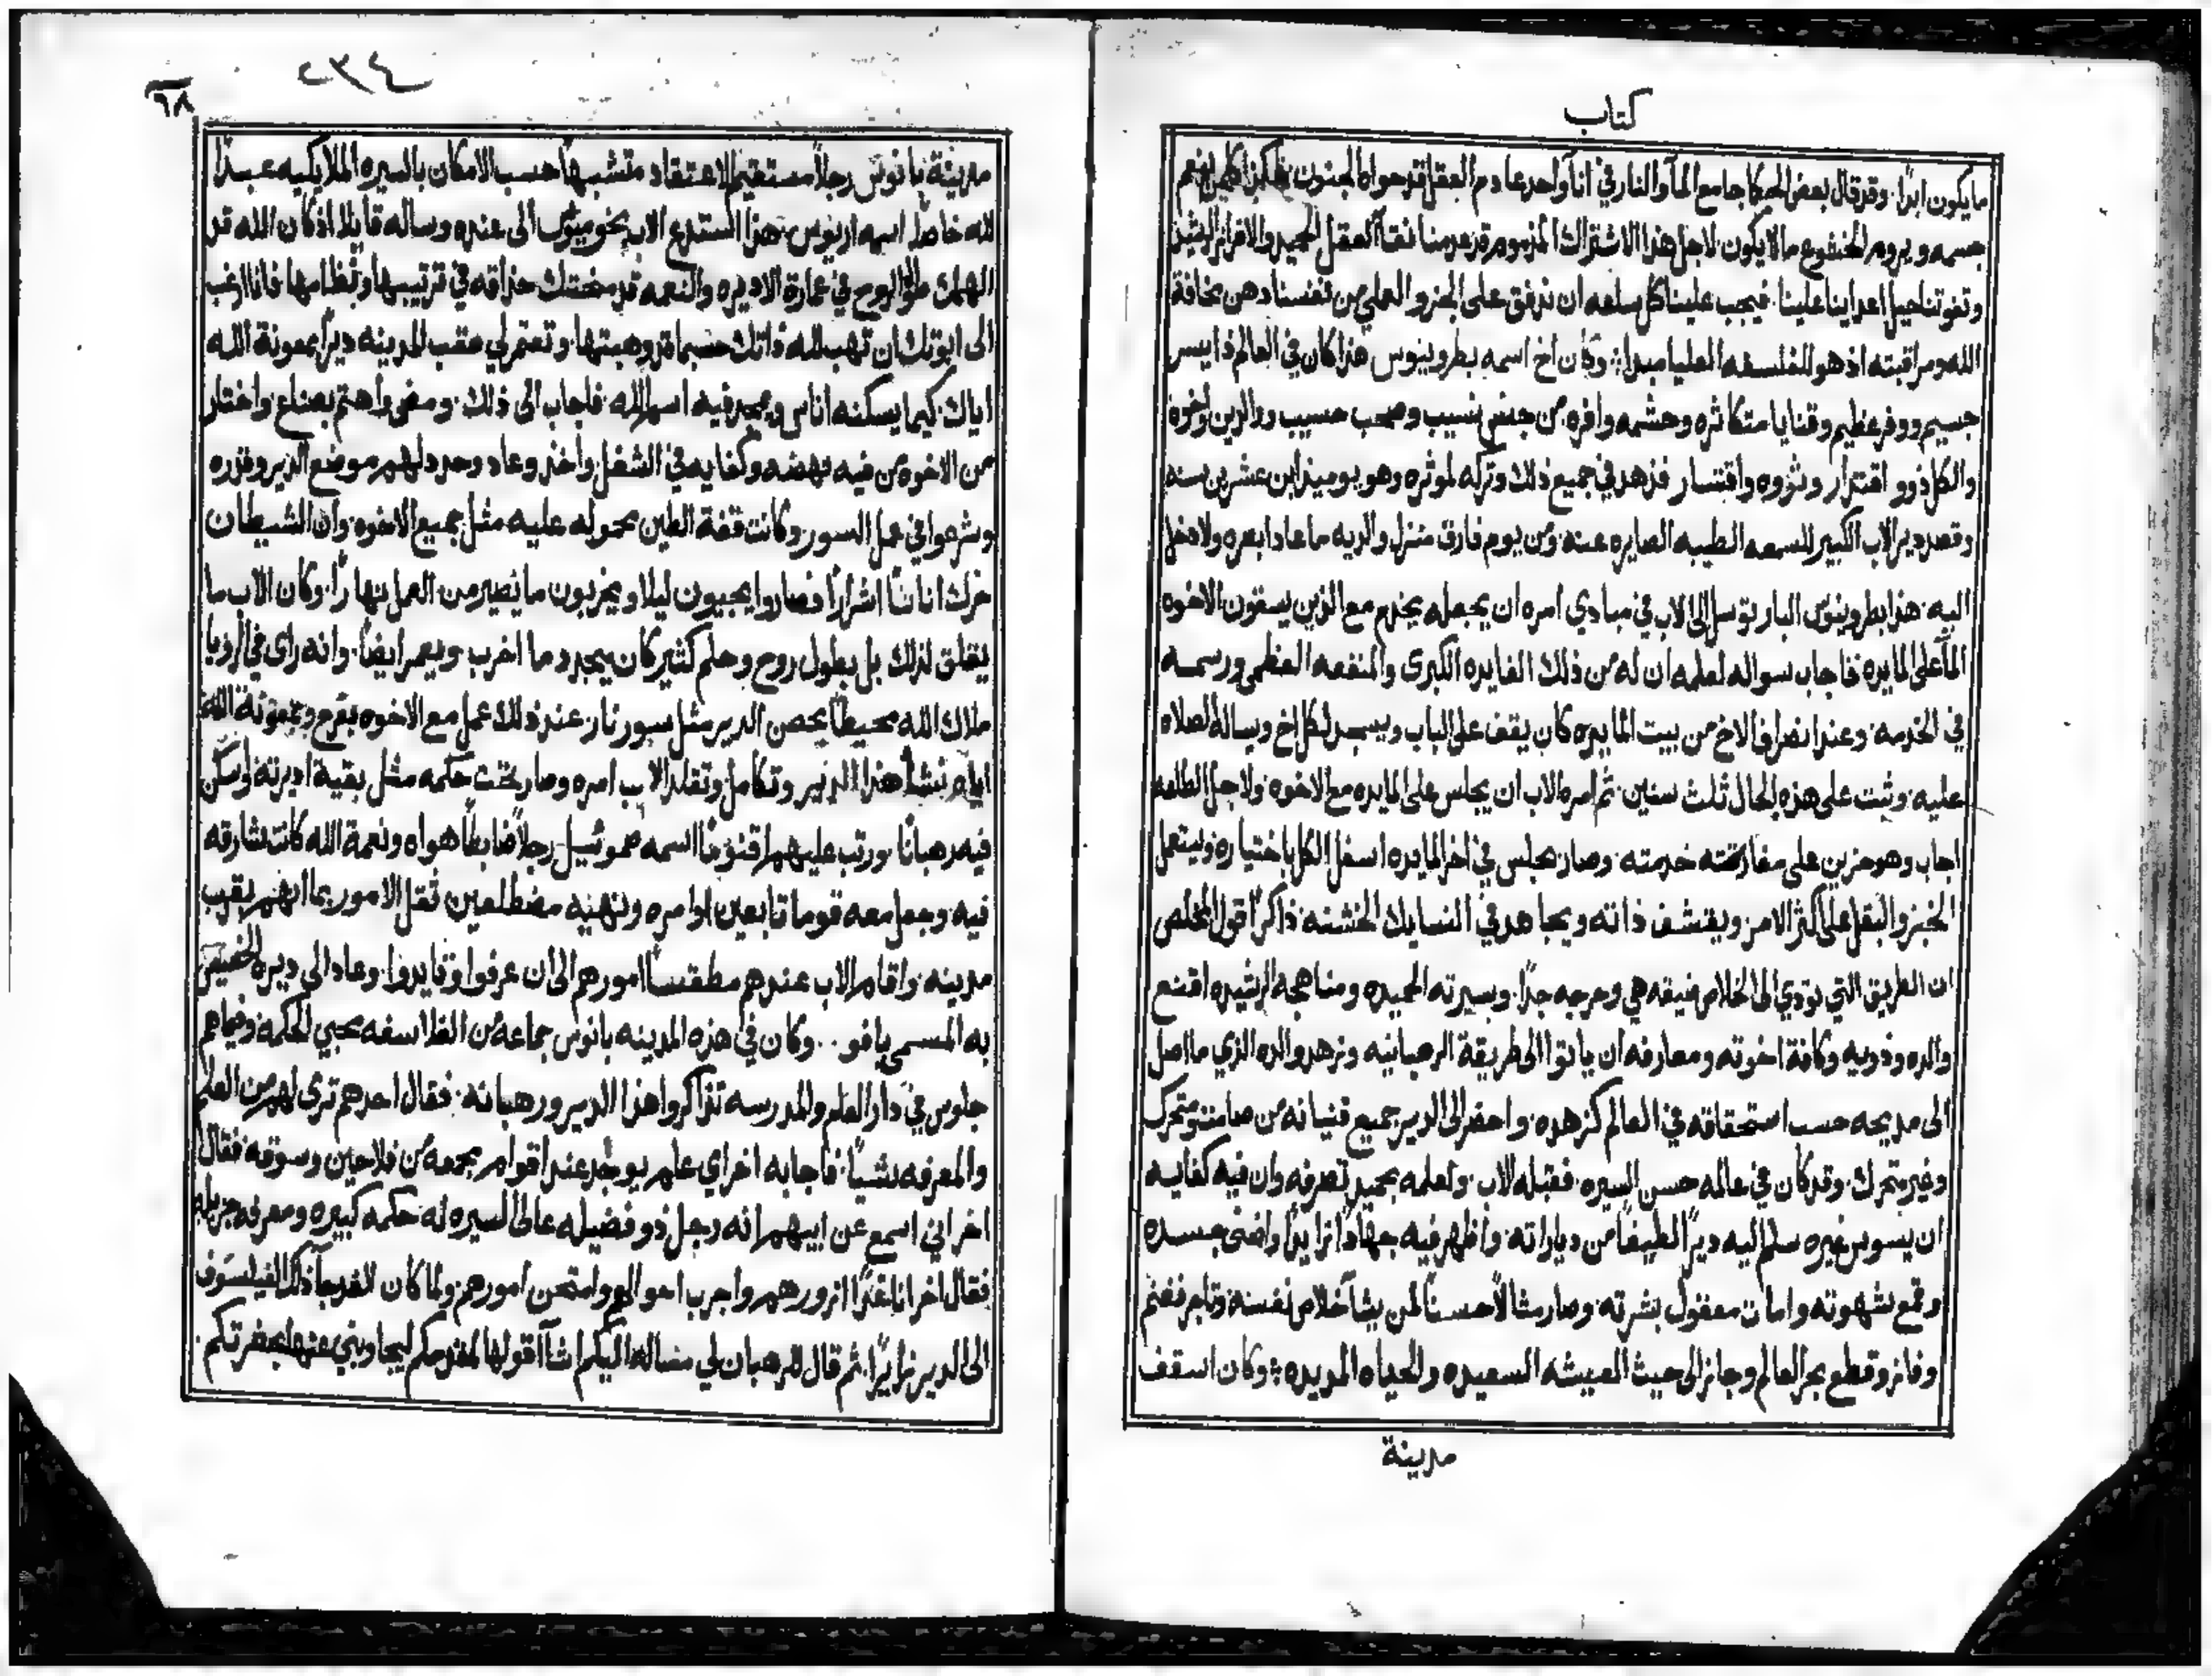 كتاب
ما يكون ابدًا. وقد قال بعض الحكما جامع المآ والنار في انآ واحد عادم العقل قد حواه الجنون كذلك من ينعم
جسمه ويروم الخشوع ما لا يكون لاجل هذا الاشتراك المذموم قد عدمنا نقآ العقل الحميد والافراز الرشيد
وتفوتنا حيل اعداينا علينا. فيجب علينا كل ساعه ان ندقق على الجزو العلي من نفسنا دهن مخافة
الله ومراقبته اذ هو للفلسفه العليا مبدا؛ وكان اخ اسمه بطرونيوس هذا كان في العالم ذا ييس
جسيم ووفر عظيم وقنايا متكاثره وحشمه وافره. من جنس نسيب وصحب حسيب ووالدين واخوة
والكل ذوو اقتدار وثروه واقتسار فزهد في جميع ذلك وتركه لموثره وهو يوميذ ابن عشرين سنه
وقصد دير الاب الكبير للسمعه الطيبه الصايره عنه. ومن يوم فارق منزل والديه ما عاد ابصره ولا دخل
اليه. هذا بطرونيوس البار توسل الى الاب في مبادي امره ان يجعله يخدم مع الذين يسقون الاخوه
المآ على المايده فاجاب سواله لعلمه ان له من ذلك الفايده الكبرى والمنفعه العظمى ورسمه
في الخدمه. وعند انصراف الاخ من بيت المايده كان يقف على الباب ويسجد لكل اخ ويساله الصلاه
عليه. وثبت على هذه الحال ثلث سنين. ثم امره الاب ان يجلس على المايده مع الاخوه. ولاجل الطاعه
اجاب وهو حزين على مفارقته خدمته. وصار يجلس في اخر المايده اسفل الكل باختياره. ويستعمل
الخبز والبقل على اكثر الامر. ويقشف ذاته ويجاهد في النسايك الخشنه. ذاكرًا قول المخلص
ان الطريق التي تودي الى الخلاص ضيقه هي وحرجه جدًا. وبسيرته الحميده ومناهجه الرشيده اقنع
والده وذويه وكافة اخوته ومعارفه ان ياتوا الى طريقة الرهبانيه وزهد والده الذي ما اصل
الى مديحه حسب استحقاقه في العالم كزهده. واحضر الى الدير جميع قنيانه من صامت ومتحرك
وغير متحرك. وقد كان في عالمه حسن السيره. فقبله الاب. ولعلمه بحميد تصرفه وان فيه كفايه
ان يسوس غيره سلم اليه ديرًا لطيفًا من دياراته. واظهر فيه جهادًا زايدًا واضنى جسده
وقمع شهوته وامات معقول بشرته. وصار مثالًا حسنًا لمن يشآ خلاص نفسه وتاجر فغنم
وفاز وقطع بحر العالم وجاز الى حيث المعيشه السعيده والحياه المديده؛ وكان اسقف
مدينة
٦٨
مدينة بانوس رجلًا مستقيم الاعتقاد متشبهًا حسب الامكان بالسيره الملايكيه عبدًا
لله خاصًا. اسمه اريوس. هذا استدعى الاب بخوميوس الى عنده وساله قايلا اذ كان الله قد
الهمك طول الروح في عمارة الاديره والنعمه قد منحتك حذاقه في ترتيبها ونظامها فانا ارغب
الى ابوتك ان تهب لله ذاتك حسبما قد وهبتها. وتعمر لي عقب المدينه ديرًا بمعونة الله
اياك. كيما يسكنه اناس ويمجد فيه اسم الله. فاجاب الى ذلك. ومضى واهتم بصناع. واختار
من الاخوه من فيه نهضه وكفايه في الشغل. واخذ وعاد وحدد لهم موضع الدير وقدره
وشرعوا في عمل السور. وكانت قفة الطين محموله عليه مثل جميع الاخوه. وان الشيطان
حرك اناسًا اشرارًا فصاروا يجيبون ليلا ويخربون ما يصير من العمل نهارًا. وكان الاب ما
يقلق لذلك بل بطول روح وحلم كثير كان يجدد ما اخرب ويعمر ايضًا. وانه راى في الرويا
ملاك الله محيطًا يحصن الدير مثل سور نار عند ذلك عمل مع الاخوه بفرح وبمعونة الله
نشا هذا الدير وتكامل وتقلد الاب امره وصار تحت حكمه مثل بقية اديرته وسكن
فيه رهبانًا. ورتب عليهم اقنومًا اسمه صموئيل رجلًا ضابطًا هواه ونعمة الله كانت تشارقه
فيه. وجعل معه قوما تابعين اوامره ونهيه مضطلعين ثقل الامور بما انهم بقرب
مدينه. واقام الاب عندهم مطقسًا امورهم الى ان عرفوا وتايدوا. وعاد الى ديره الخصيص
به المسمى يافو.. وكان في هذه المدينه بانوس جماعه من الفلاسفه محبي الحكمه وفيما هم
جلوس في دار العلم والمدرسه تذاكروا هذا الدير ورهبانه. فقال احدهم ترى لهم من العلم
والمعرفه شيًا. فاجابه اخر اي علم يوجد عند اقوام مجمعه من فلاحين وسوقه فقال
اخر اني اسمع عن ابيهم انه رجل ذو فضيله عالي السيره له حكمه كبيره ومعرفه جزيله
فقال اخر انا غدًا ازورهم واجرب احوالهم وامتحن امورهم ولما كان الغد جآ ذلك الفيلسوف
الى الدير زايرًا. ثم قال للرهبان لي مساله اليكم اشآ اقولها لمقدمكم ليجاوبني عنها بحضرتكم.